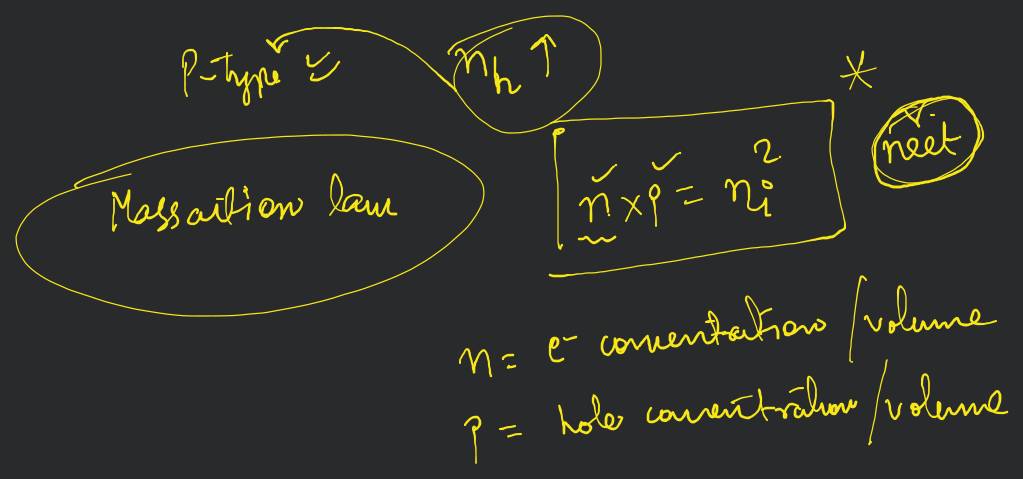 P-type n_h ↑
*
neet
Mass action law
n × p = n_i²
n = e⁻ concentration / volume
p = hole concentration / volume